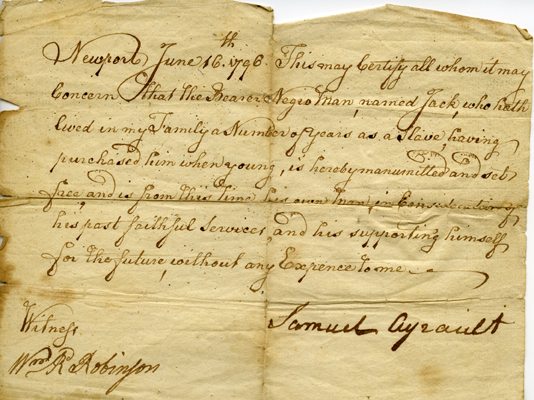 Newport June 16th. 1796 This may Certify all whom it may
Concern that the Bearer Negro Man, named Jack, who hath
lived in my Family a Number of years as a Slave, having
purchased him when young, is hereby manumitted and set
free, and is from this time his own Man, in Consideration of
his past faithful Services, and his supporting himself
for the future, without any Expence to me
Samuel Ayrault
Witness
Wm. R Robinson